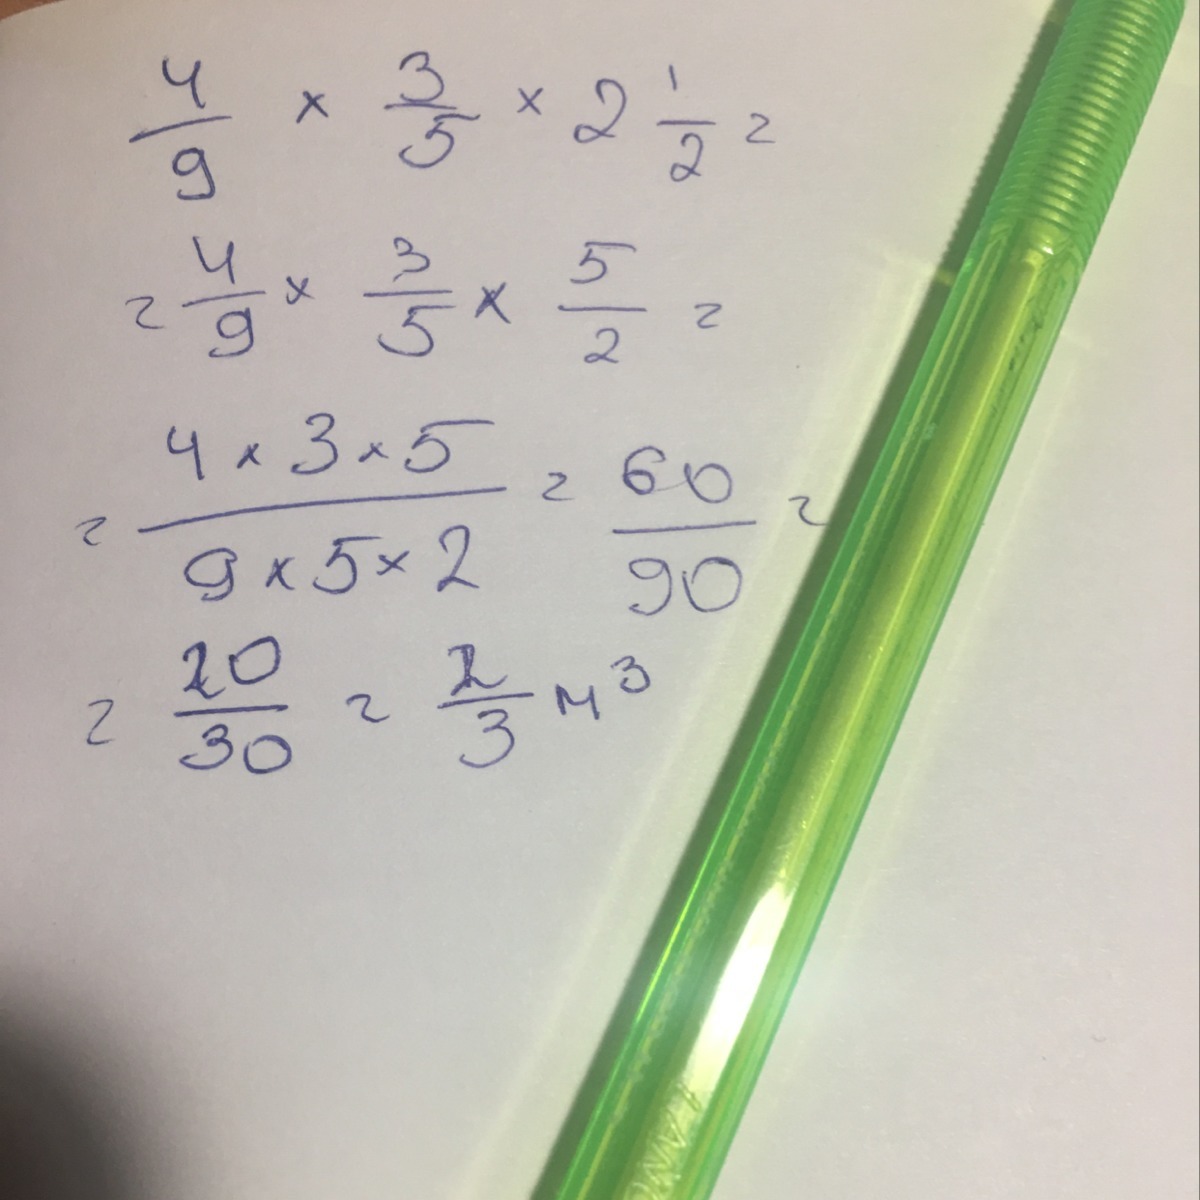 4/9 × 3/5 × 2 1/2 =
= 4/9 × 3/5 × 5/2 =
= 4 × 3 × 5 / 9 × 5 × 2 = 60/90 =
= 20/30 = 2/3 м³